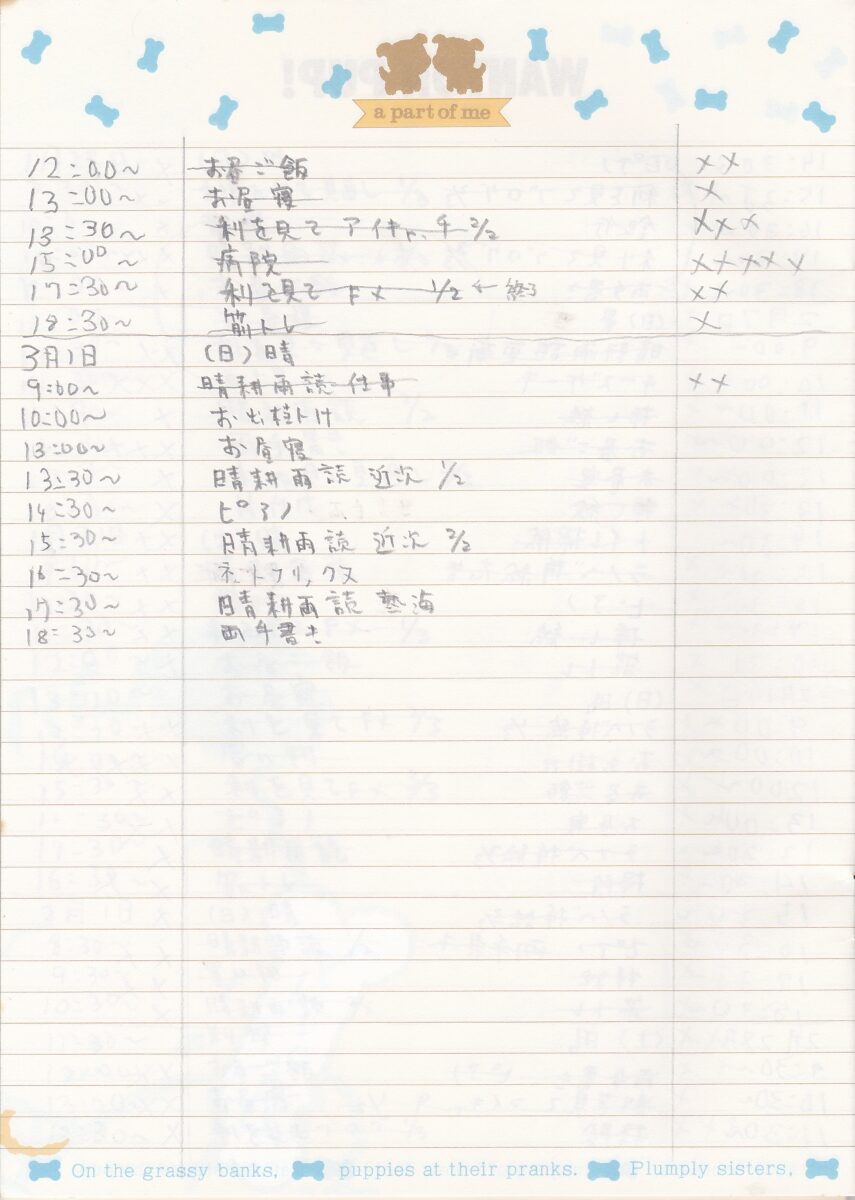 a part of me
12:00~ お昼ご飯 ××
13:00~ お昼寝 ×
13:30~ 利を見て アイキャッチ 2/2 ×××
15:00~ 病院 ×××××
17:30~ 利を見て ドメ 1/2 ← 終了 ××
18:30~ 筋トレ ×
3月1日 (日)晴
9:00~ 晴耕雨読 仕事 ××
10:00~ お出掛け
13:00~ お昼寝
13:30~ 晴耕雨読 近次 1/2
14:30~ ピアノ
15:30~ 晴耕雨読 近次 2/2
16:30~ ネットフリックス
17:30~ 晴耕雨読 熱海
18:30~ 両手書き
On the grassy banks, puppies at their pranks. Plumply sisters,